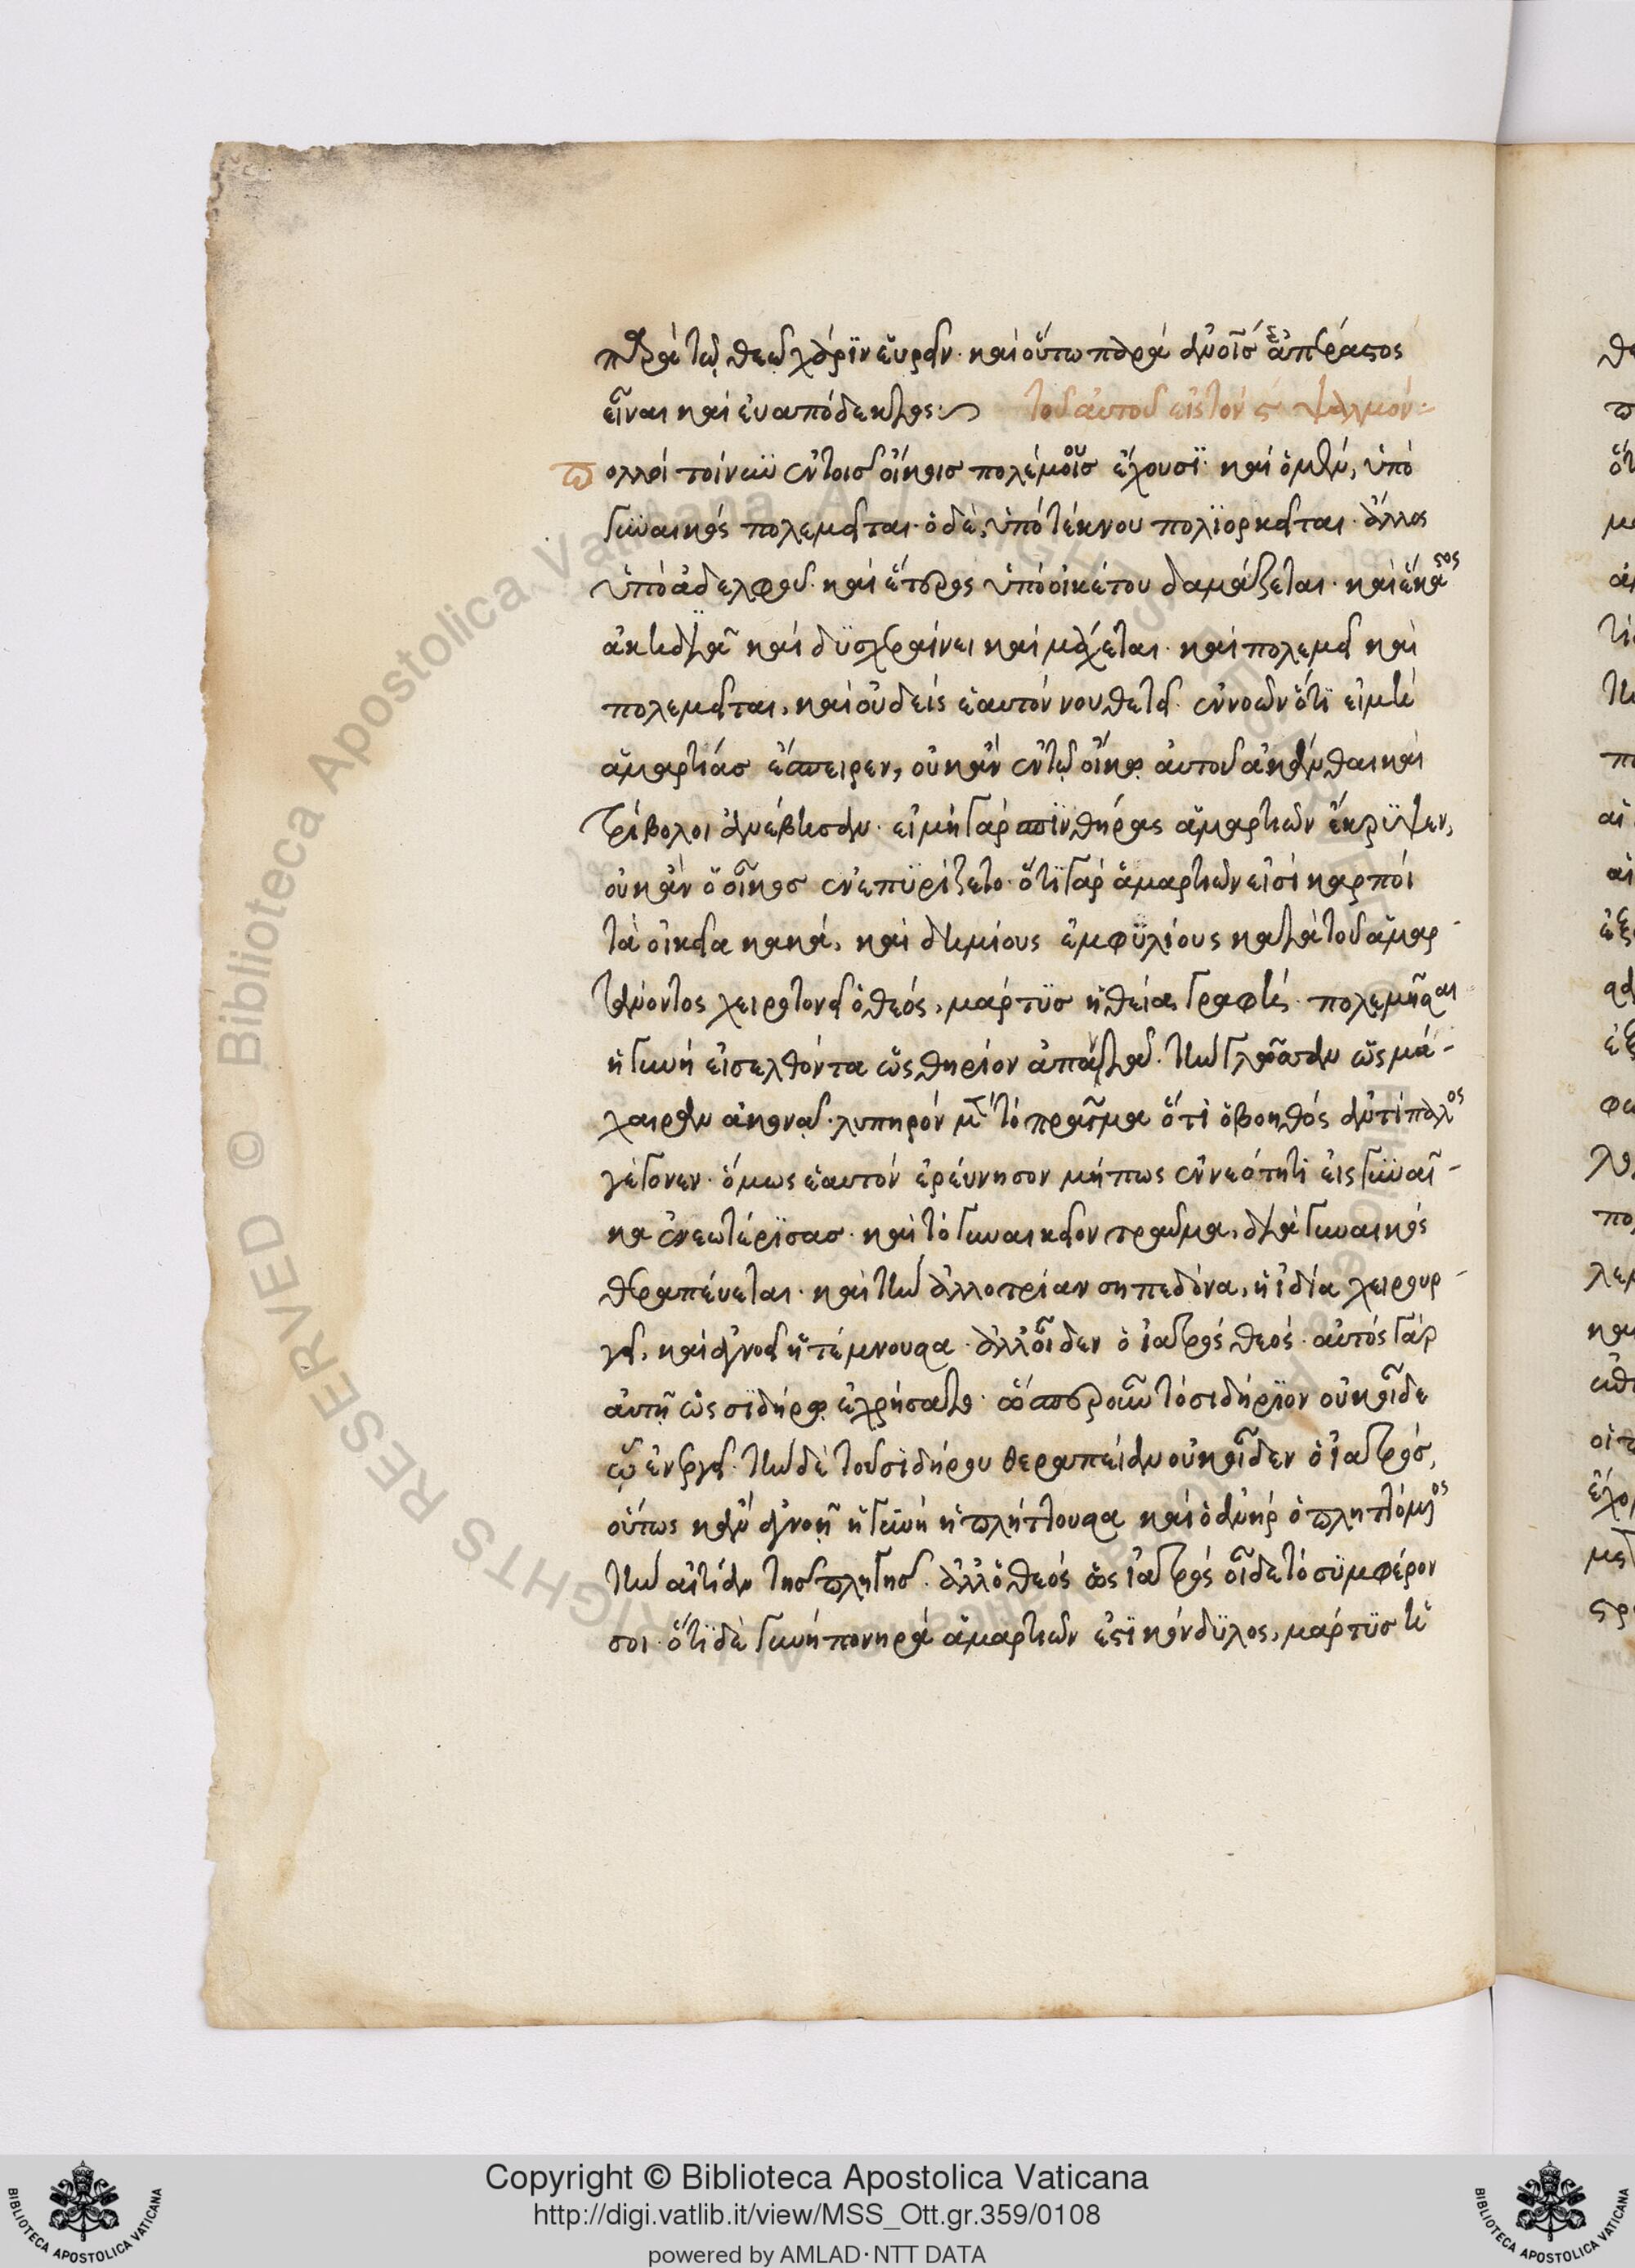 παρὰ τῷ θεῷ χάριν εὕραν. καὶ οὕτω παρὰ ἀνοῖς ἀπέραστος
εἶναι καὶ εὐαπόδεκτος:
τοῦ αὐτοῦ εἰς τὸν ϛ ψαλμόν:
πολλοὶ τοίνυν ἐν τοῖς οἴκοις πολέμους ἔχουσϊ· καὶ ὁ μὲν, ὑπὸ
γυναικὸς πολεμεῖται. ὁ δὲ, ὑπὸ τέκνου πολϊορκεῖται. ἄλλος
ὑπὸ ἀδελφοῦ. καὶ ἕτερος ὑπὸ οἰκέτου δαμάζεται. καὶ ἕκαστος
ἀκηδιᾶ καὶ δϋσχεραίνει καὶ μάχεται. καὶ πολεμεῖ καὶ
πολεμεῖται, καὶ οὐδεὶς ἑαυτὸν νουθετεῖ. ἐννοῶν ὅτϊ εἰ μὴ
ἁμαρτίας ἔσπειρεν, οὐκ ἂν ἐν τῷ οἴκῳ αὐτοῦ ἄκανθαι καὶ
τρίβολοι ἀνέβησαν. εἰ μὴ γὰρ σπϊνθήρας ἁμαρτιῶν ἔκρϋψεν,
οὐκ ἂν ὁ οἶκος ἐνεπϋρίζετο. ὅτϊ γὰρ ἁμαρτιῶν εἰσὶ καρποὶ
τὰ οἰκεῖα κακά, καὶ δημίους ἐμφϋλίους κατὰ τοῦ ἁμαρ-
τάνοντος χειροτονεῖ ὁ θεός, μάρτϋς ἡ θεία γραφή. πολεμῆσαι
ἡ γυνὴ εἰσελθόντα ὡς θηρίον ἀπαντᾶ. τὴν γλῶσσαν ὡς μά-
χαιραν ἀκονεῖ. λυπηρὸν μὲν τὸ πρᾶγμα ὅτι ὁ βοηθὸς ἀντίπαλος
γέγονεν. ὅμως ἑαυτὸν ἐρεύνησον μήπως ἐν νεότητι εἰς γυναῖ-
κα ἐνεωτέρϊσας. καὶ τὸ γυναικεῖον τραῦμα, διὰ γυναικὸς
θεραπεύεται. καὶ τὴν ἀλλοτρίαν σηπεδόνα, ἡ ἰδία χειρουρ-
γεῖ, καὶ ἀγνοεῖ ἡ τέμνουσα. ἀλλ οἶδεν ὁ ἰατρὸς θεός. αὐτὸς γὰρ
αὐτῇ ὡς σϊδήρῳ ἐχρήσατο. ὥσπερ οὖν τὸ σιδήρϊον οὐκ οἶδε
ὃ ἐνεργεῖ. τὴν δὲ τοῦ σιδήρου θεραπείαν οὐκ οἶδεν ὁ ἰατρός,
οὕτως κἂν ἀγνοῇ ἡ γυνὴ ἡ πλήττουσα καὶ ὁ ἀνὴρ ὁ πληττόμενος
τὴν αἰτίαν τῆς πληγῆς. ἀλλ ὁ θεὸς ὡς ἰατρὸς οἶδε τὸ σϋμφέρον
σοι. ὅτϊ δὲ γυνὴ πονηρὰ ἁμαρτιῶν ἐστϊ κόνδϋλος, μάρτϋς ἡ
Copyright © Biblioteca Apostolica Vaticana
http://digi.vatlib.it/view/MSS_Ott.gr.359/0108
powered by AMLAD·NTT DATA